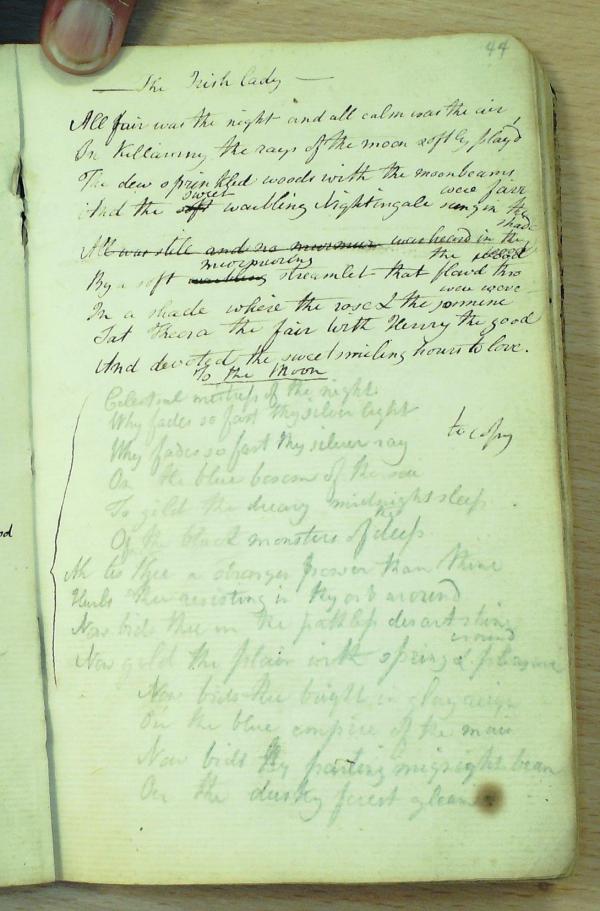 44
The Irish Lady
All fair was the night and all calm was the air,
On Killarny the rays of the moon softly play'd
The dew sprinkled woods with the moonbeams were fair
And the soft sweet warbling Nightingale sung in the shade
All was still and no murmur was heard in the
By a soft warbling murmuring streamlet that flowd thro the wood
In a shade where the rose & the jasmine were wove
Sat Thora the fair with Henry the good
And devoted the sweet smiling hours to love.
To the Moon
Celestial mistress of the night
Why fades so fast thy silver light
to copy
Why fades so fast thy silver ray
On the blue bosom of the sea
To gild the dreary midnight sleep
Of the black monsters of the deep
Ah tis thee a stronger power than thine
Hurls thee resisting in thy orb around
Now bids thee in the pathless desart shine
Now gild the plain with spring & pleasure around
Now bids thee bright in glory reign
On the blue empire of the main
Now bids thy parting midnight beam
On the dusky forest gleam